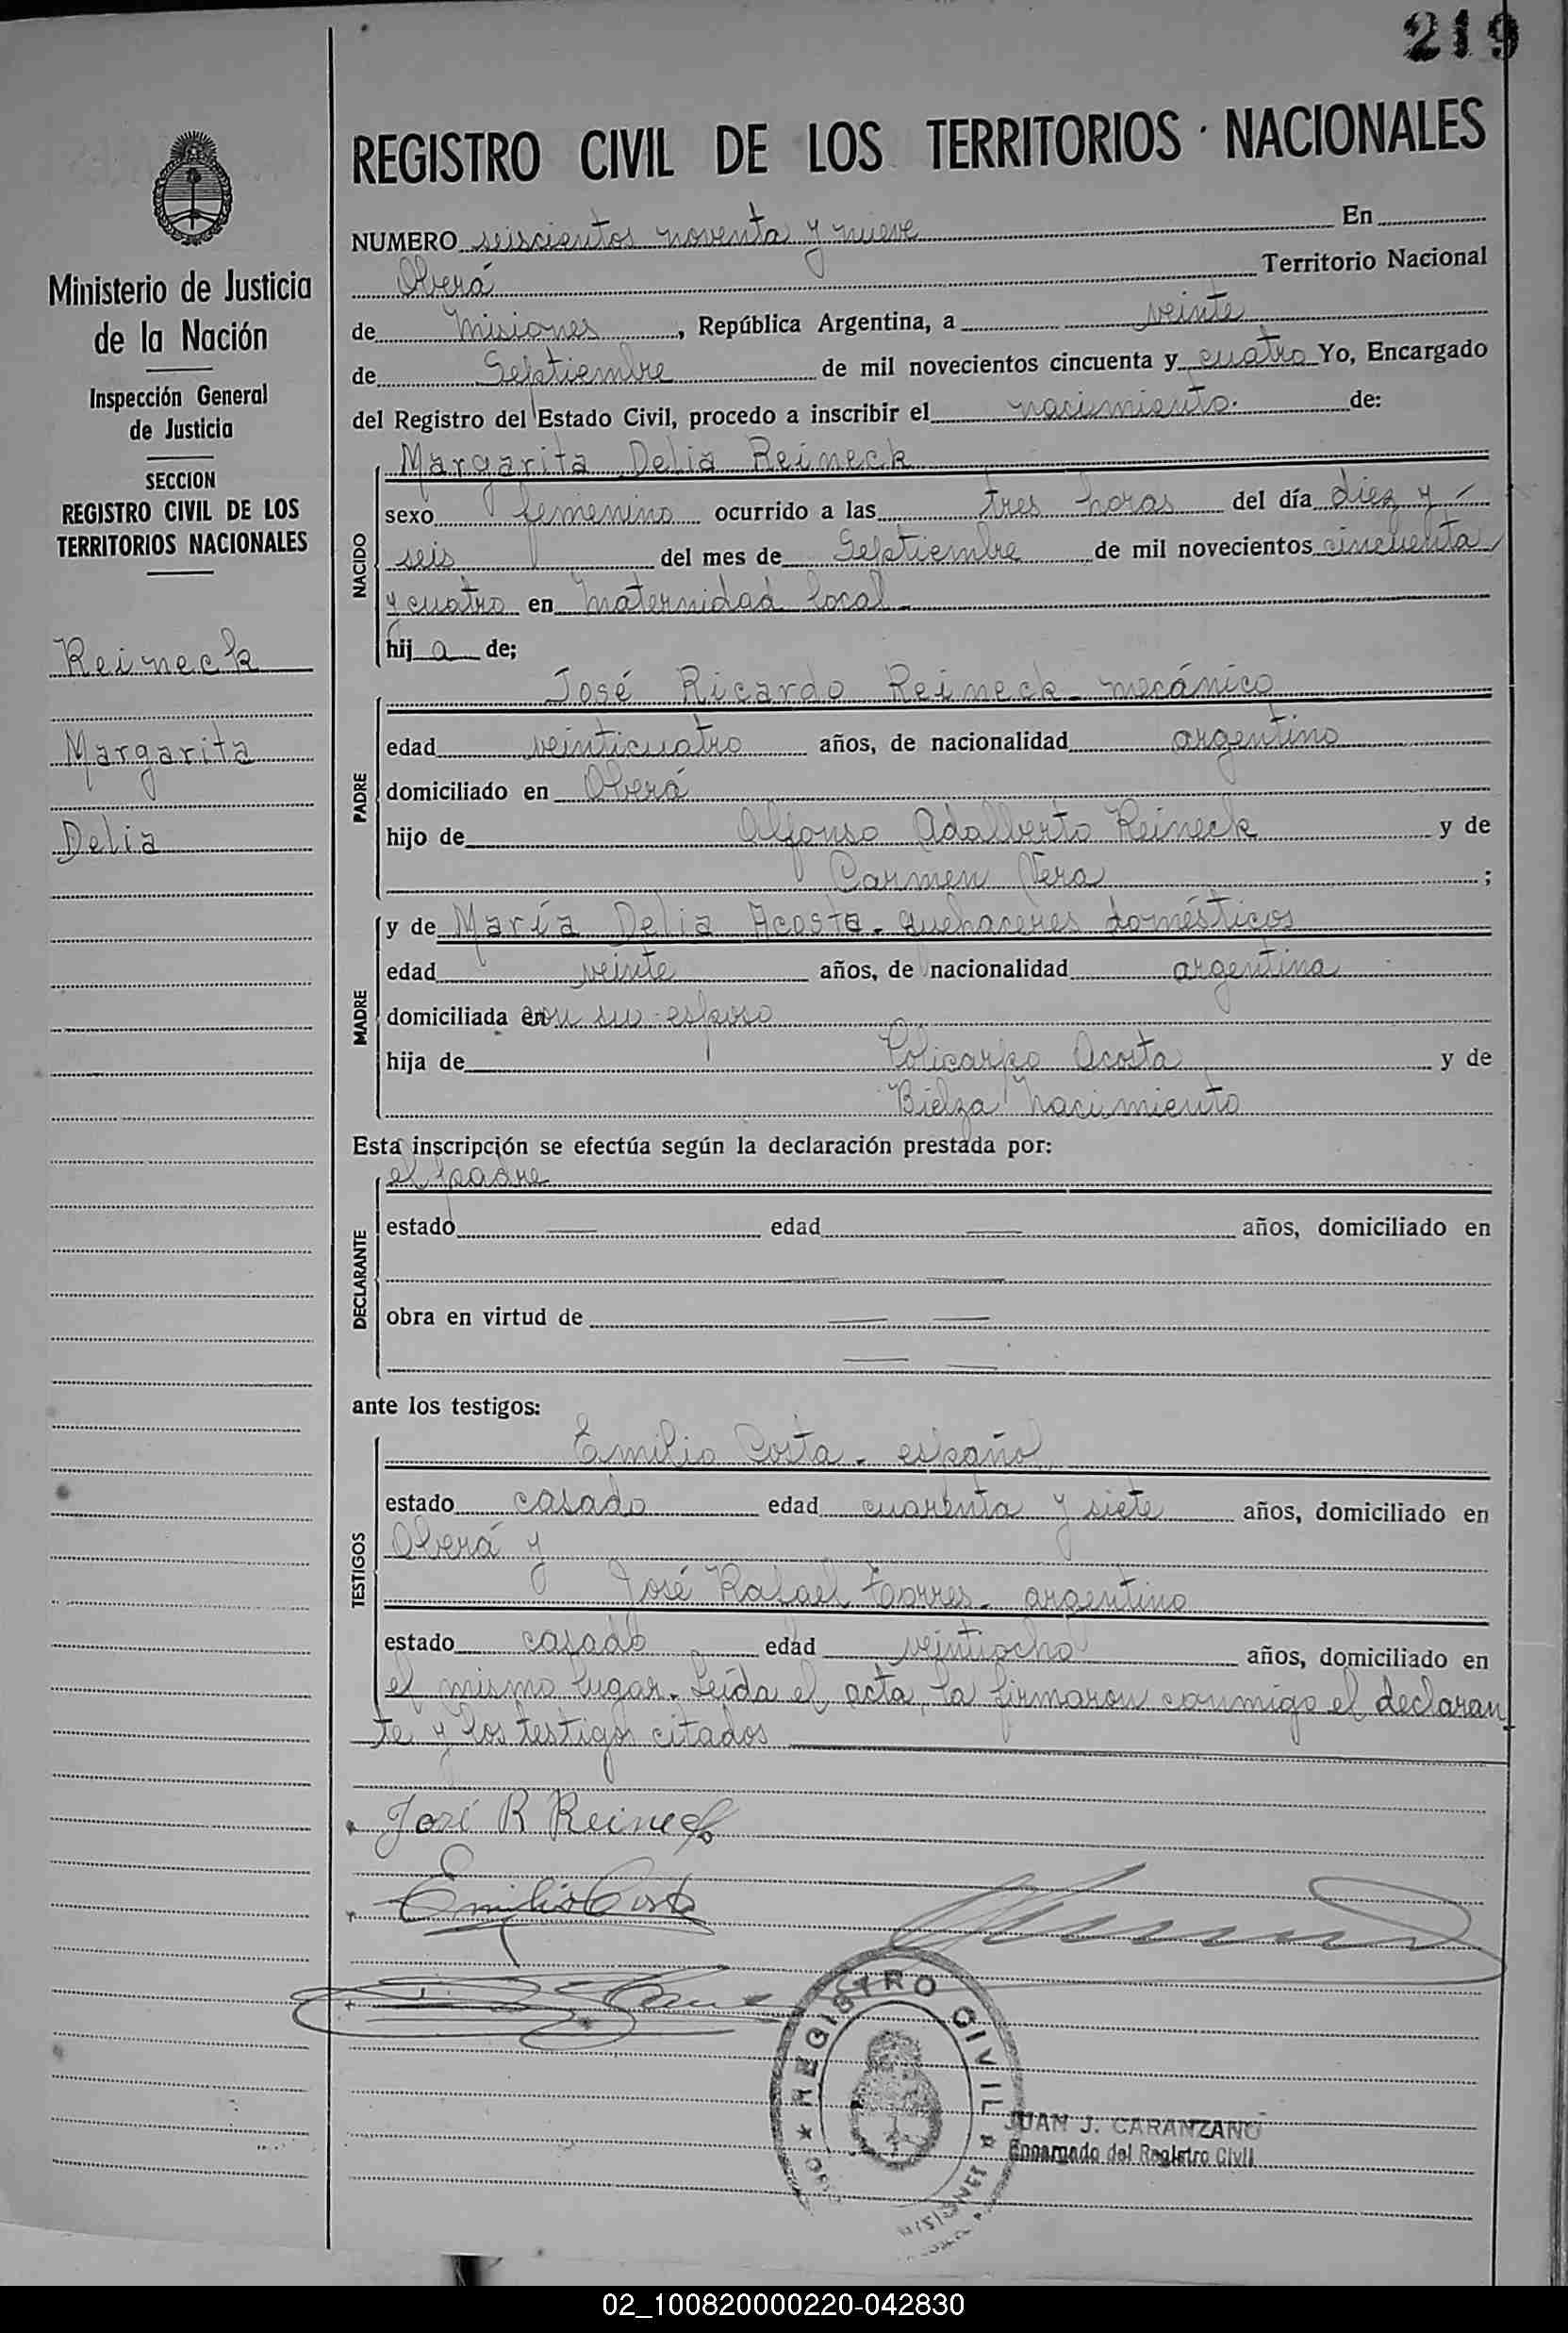 219
REGISTRO CIVIL DE LOS TERRITORIOS NACIONALES
Ministerio de Justicia
de la Nación
Inspección General
de Justicia
SECCION
REGISTRO CIVIL DE LOS
TERRITORIOS NACIONALES
Reineck
Margarita
Delia
NUMERO seiscientos noventa y nueve En
Oberá Territorio Nacional
de Misiones, República Argentina, a veinte
de Septiembre de mil novecientos cincuenta y cuatro Yo, Encargado
del Registro del Estado Civil, procedo a inscribir el nacimiento de:
NACIDO
Margarita Delia Reineck
sexo femenino ocurrido a las tres horas del día diez y
seis del mes de Septiembre de mil novecientos cincuenta
y cuatro en Maternidad local
hij a de;
PADRE
José Ricardo Reineck - mecánico
edad veinticuatro años, de nacionalidad argentino
domiciliado en Oberá
hijo de Alfonso Adalberto Reineck y de
Carmen Vera ;
MADRE
y de María Delia Acosta - quehaceres domésticos
edad veinte años, de nacionalidad argentina
domiciliada en con su esposo
hija de Policarpo Acosta y de
Bielza Nacimiento
Esta inscripción se efectúa según la declaración prestada por:
DECLARANTE
el padre
estado — edad — años, domiciliado en
— —
obra en virtud de — —
— —
ante los testigos:
TESTIGOS
Emilio Costa - español
estado casado edad cuarenta y siete años, domiciliado en
Oberá y
José Rafael Torres - argentino
estado casado edad veintiocho años, domiciliado en
el mismo lugar. Leída el acta, la firmaron conmigo el declaran
te y los testigos citados
José R Reineck
Emilio Costa
REGISTRO CIVIL
MISIONES
JUAN J. CARANZANO
Encargado del Registro Civil
02_100820000220-042830